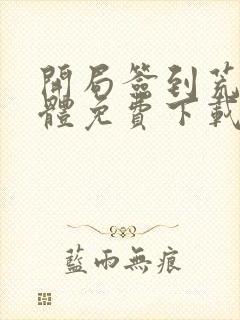 開局簽到荒
體免費下載
藍雨無痕